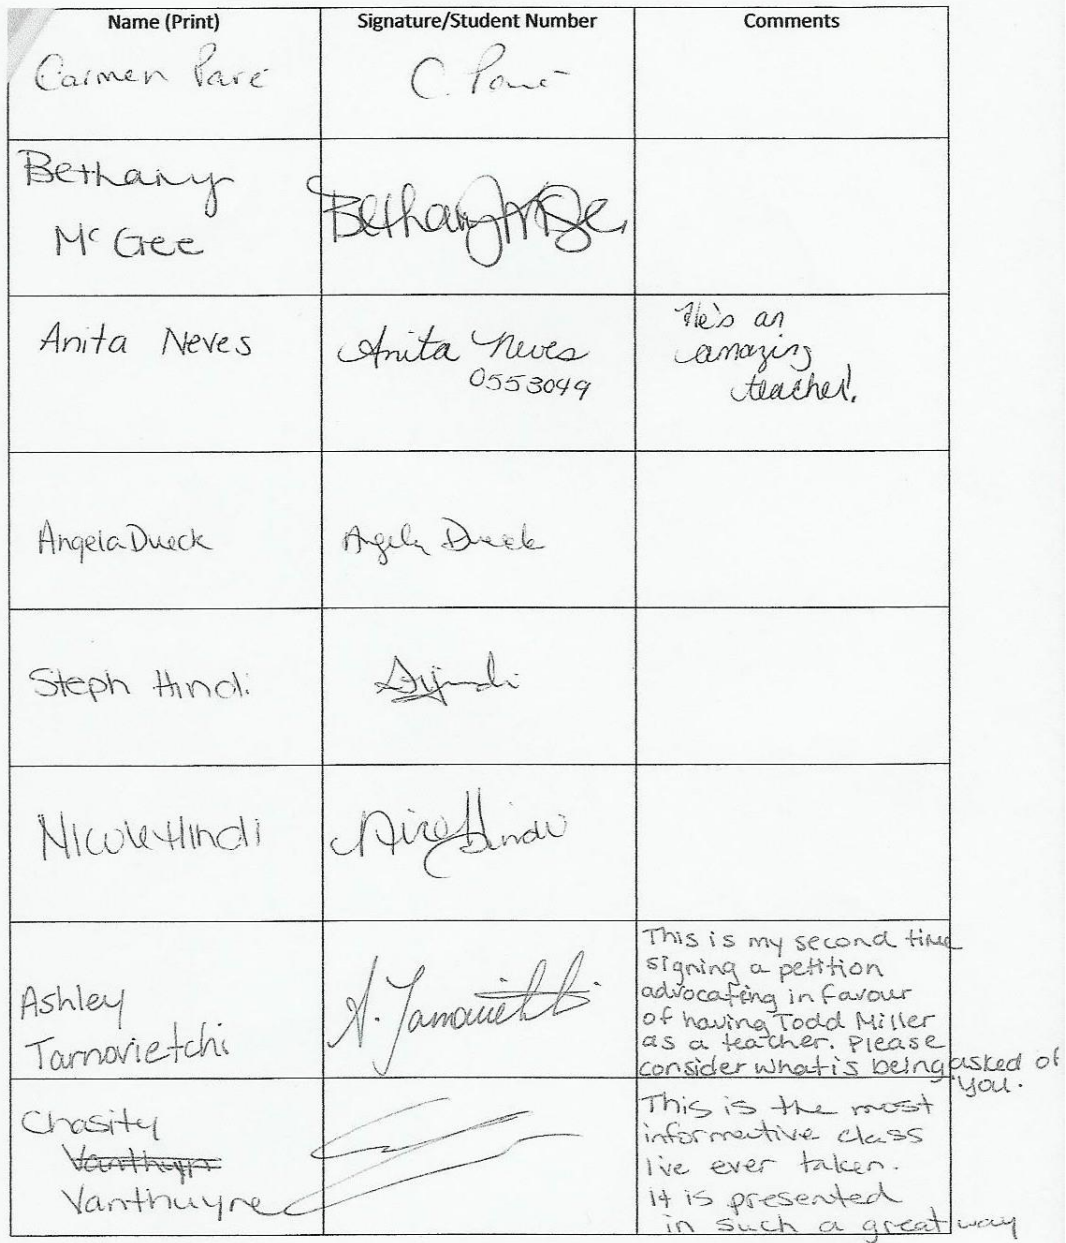 Name (Print) Signature/Student Number Comments
Carmen Paré C. Paré
Bethany
McGee
Bethany McGee
Anita Neves Anita Neves
0553049
He's an
amazing
teacher!
Angela Dueck Angela Dueck
Steph Hindi
Nicole Hindi Nicole Hindi
Ashley
Tarnovietchi
A. Tarnovietchi
This is my second time
signing a petition
advocating in favour
of having Todd Miller
as a teacher. Please
consider what is being asked of
you.
Chasity
Vanthuyn
Vanthuyne
This is the most
informative class
I've ever taken.
it is presented
in such a great way